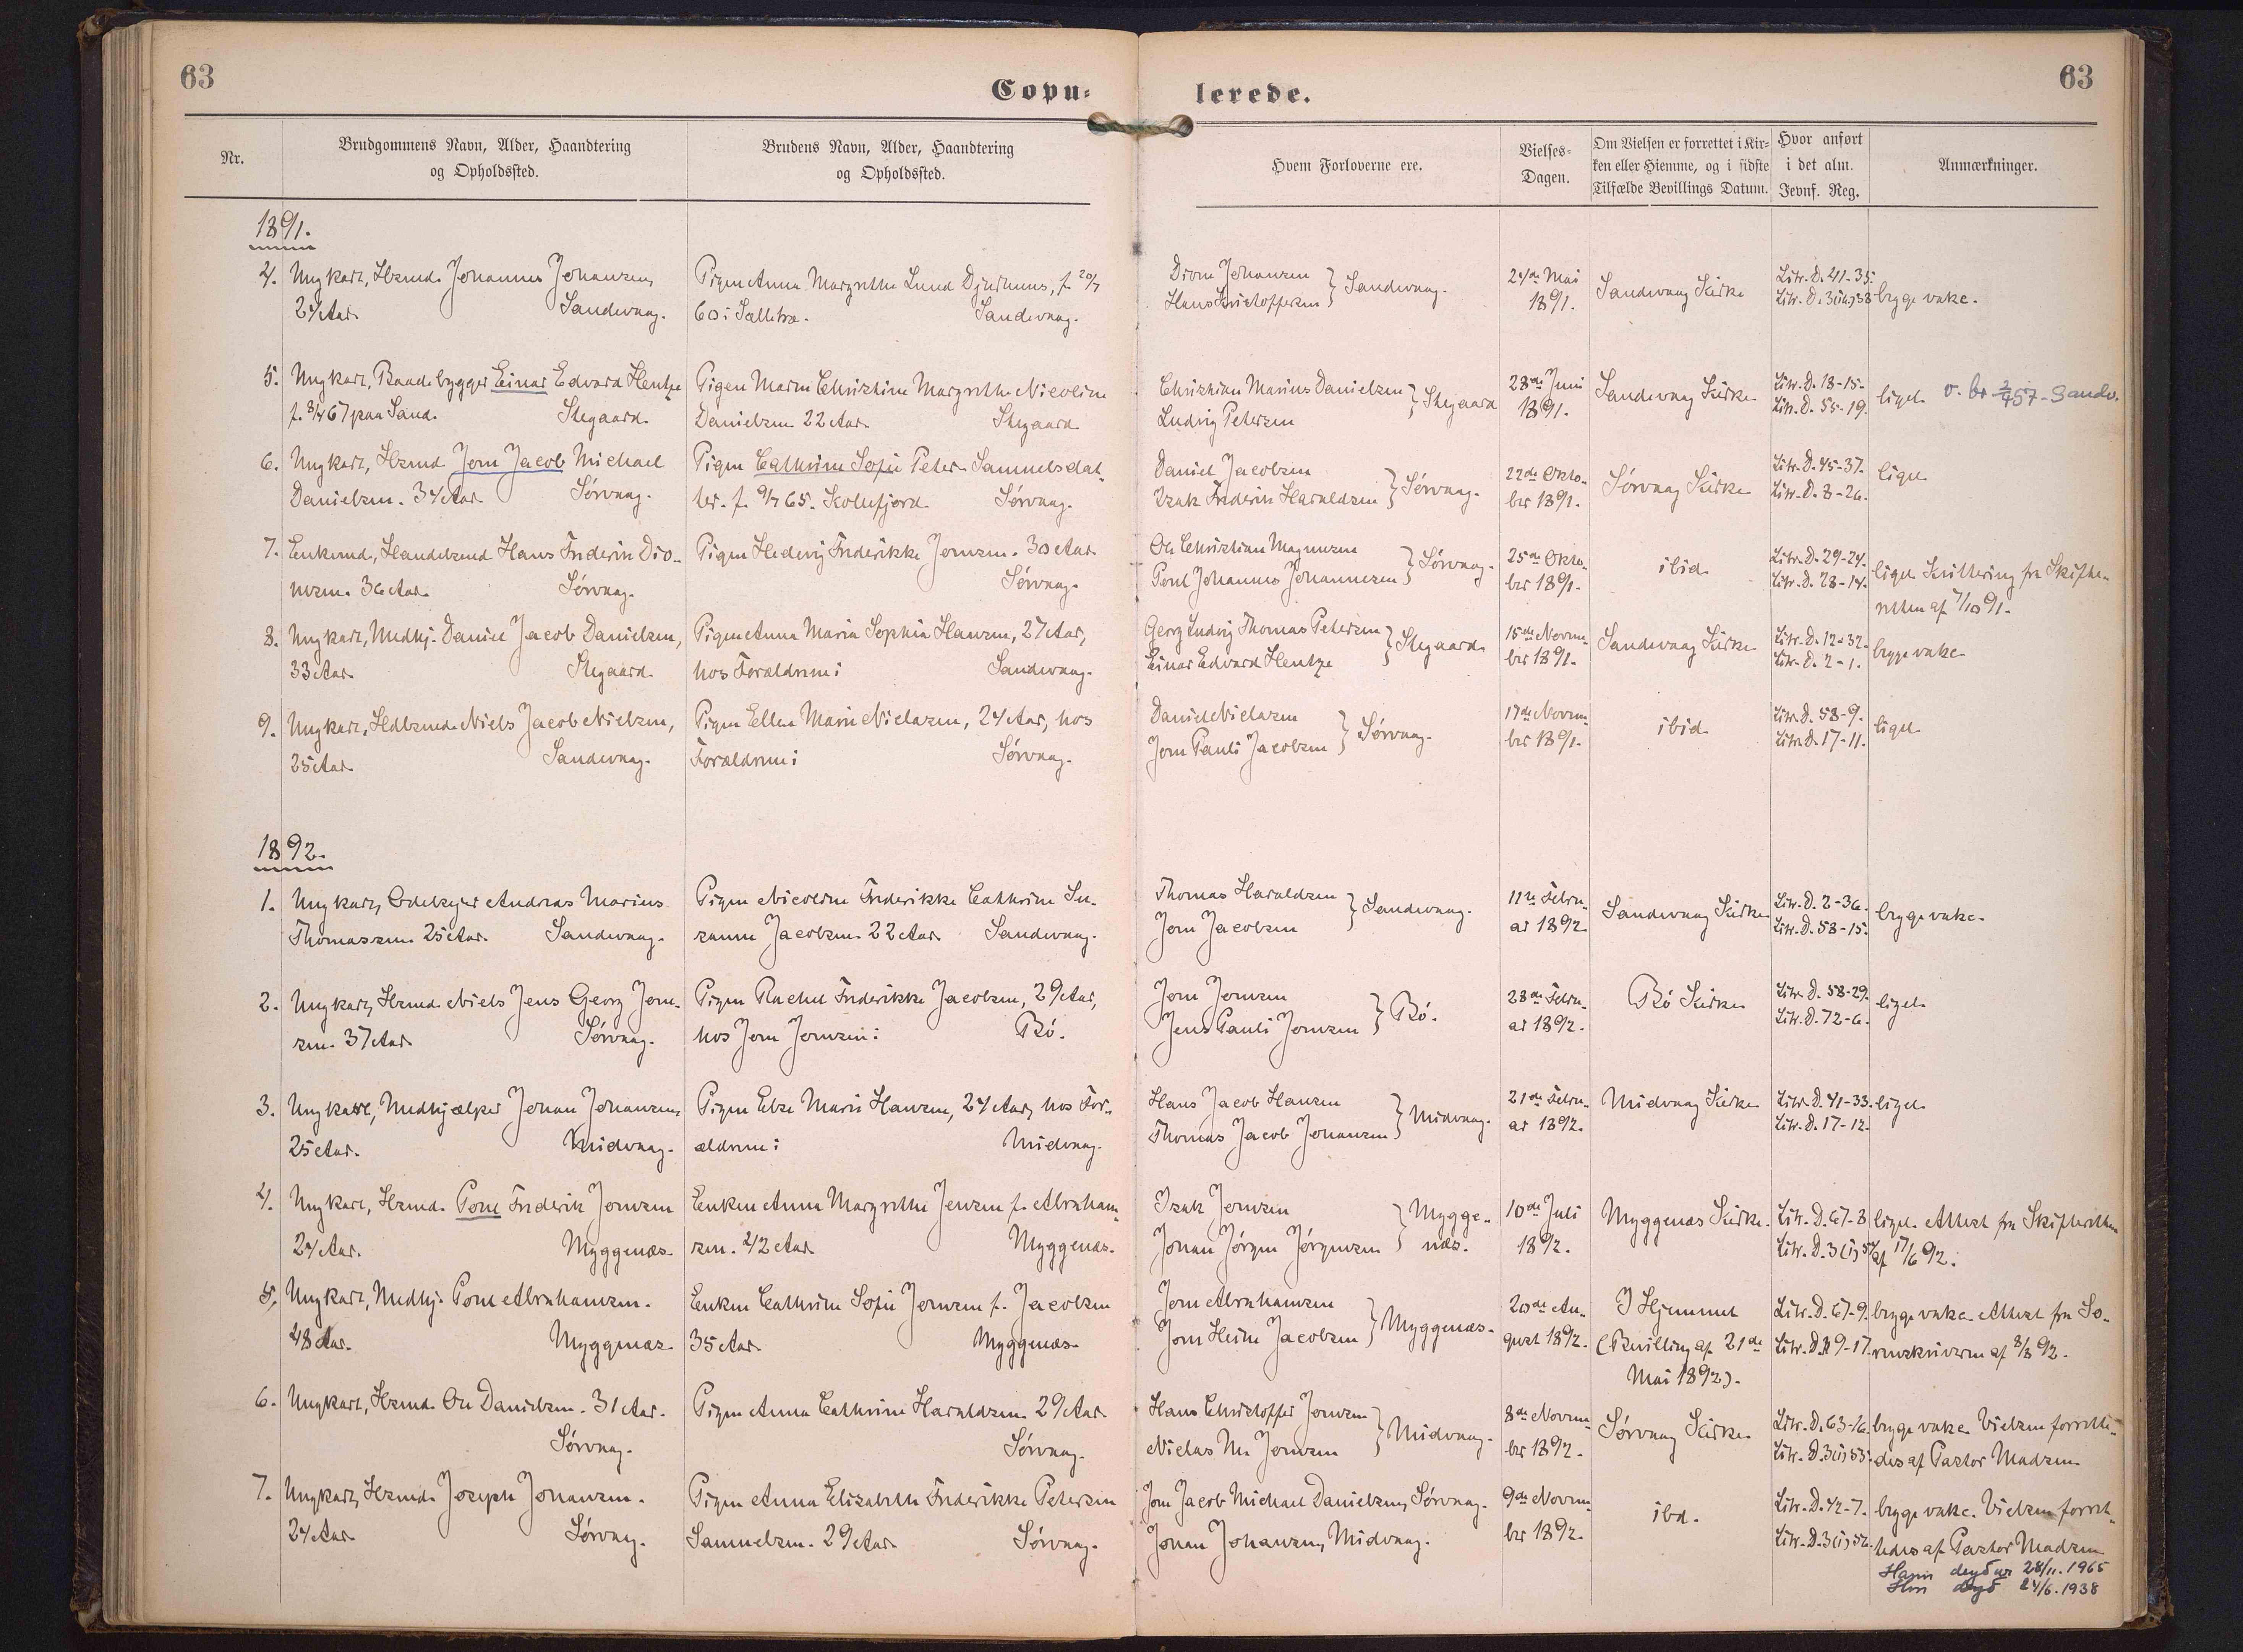 63
Copu-
lerede.
63
Nr.
Brudgommens Navn, Alder, Haandtering
og Opholdssted.
Brudens Navn, Alder, Haandtering
og Opholdssted.
Hvem Forloverne ere.
Vielses-
Dagen.
Om Vielsen er forrettet i Kir-
ken eller Hjemme, og i sidste
Tilfælde Bevillings Datum.
Hvor anført
i det alm.
Jevnf. Reg.
Anmærkninger.
1891.
4. Ungkarl, Hsmd. Johannes Johansen,
24 Aar. Sandevaag.
Pigen Anna Margrethe Lund Djurhuus, f. 20/7
60 i Selletræ. Sandevaag.
Johansen
Hans Kristoffersen } Sandevaag.
24de Mai
1891.
Sandevaag Kirke
Litr. D. 41-35.
Litr. D. 3(i)58
begge vakc.
5. Ungkarl, Baadebygger Einar Edvard Hentze
f. 8/4 67 paa Sand. Stegaard.
Pigen Maren Christine Margrethe Nicoline
Danielsen 22 Aar. Stegaard
Christian Marius Danielsen
Ludvig Petersen } Stegaard
28de Juni
1891.
Sandevaag Kirke
Litr. D. 18-15.
Litr. D. 55-19.
ligel. v. br. 2/4 57 - Sandv.
6. Ungkarl, Hsmd. Joen Jacob Michael
Danielsen. 34 Aar. Sørvaag.
Pigen Cathrine Sofie Peter Samuelsdat-
ter. f. 9/7 65. Kollefjord. Sørvaag.
Daniel Jacobsen
Isak Frederik Haraldsen } Sørvaag.
22de Okto-
ber 1891.
Sørvaag Kirke
Litr. D. 45-37.
Litr. D. 8-26.
ligel.
7. Enkemd, Handelsmd Hans Frederik Dio-
nesen. 36 Aar. Sørvaag.
Pigen Hedevig Frederikke Joensen. 30 Aar
Sørvaag.
Ole Christian Magnussen
Poul Johannes Johannesen } Sørvaag.
25de Okto-
ber 1891.
ibid.
Litr. D. 29-24.
Litr. D. 28-14.
ligel. Kvittering fra Skifte-
retten af 7/10 91.
8. Ungkarl, Medhj. Daniel Jacob Danielsen,
33 Aar. Stegaard.
Pigen Anna Maria Sophia Hansen, 27 Aar,
hos Forældrene i Sandevaag.
Georg Ludvig Thomas Petersen
Einar Edvard Hentze } Stegaard.
15de Novem-
ber 1891.
Sandevaag Kirke
Litr. D. 12-32.
Litr. D. 2-1.
begge vakc.
9. Ungkarl, Hdlsmd. Niels Jacob Nielsen,
25 Aar. Sandevaag.
Pigen Ellen Marie Niclasen, 24 Aar, hos
Forældrene i Sørvaag.
Daniel Niclasen
Joen Pauli Jacobsen } Sørvaag.
17de Novem-
ber 1891.
ibid.
Litr. D. 58-9.
Litr. D. 17-11.
ligel.
1892.
1. Ungkarl, Odelsejer Andreas Marius
Thomassen. 25 Aar. Sandevaag.
Pigen Nicoline Frederikke Cathrine Su-
sanne Jacobsen. 22 Aar. Sandevaag.
Thomas Haraldsen
Joen Jacobsen } Sandevaag.
11te Febru-
ar 1892.
Sandevaag Kirke
Litr. D. 2-36.
Litr. D. 58-15.
begge vakc.
2. Ungkarl, Hsmd. Niels Jens Georg Joen-
sen. 37 Aar. Sørvaag.
Pigen Rachel Frederikke Jacobsen, 29 Aar,
hos Joen Joensen i Bø.
Joen Joensen
Jens Pauli Joensen } Bø.
28de Febru-
ar 1892.
Bø Kirke
Litr. D. 58-29.
Litr. D. 72-6.
ligel.
3. Ungkarl, Medhjælper Johan Johansen,
25 Aar. Midvaag.
Pigen Else Marie Hansen, 24 Aar, hos For-
ældrene i Midvaag.
Hans Jacob Hansen
Thomas Jacob Johansen } Midvaag.
21de Febru-
ar 1892.
Midvaag Kirke
Litr. D. 41-33.
Litr. D. 17-12.
ligel.
4. Ungkarl, Hsmd. Poul Frederik Joensen
24 Aar. Myggenæs.
Enken Anna Margrethe Jensen f. Abraham-
sen. 42 Aar. Myggenæs.
Isak Joensen
Johan Jørgen Jørgensen } Mygge-
næs.
10de Juli
1892.
Myggenæs Kirke.
Litr. D. 67-8
Litr. D. 3(i)54
ligel. Attest fra Skifteretten
af 17/6 92.
5. Ungkarl, Medhj. Poul Abrahamsen.
48 Aar. Myggenæs
Enken Cathrine Sofie Joensen f. Jacobsen
35 Aar. Myggenæs.
Joen Abrahamsen
Joen Heine Jacobsen } Myggenæs.
20de Au-
gust 1892.
I Hjemmet
(Bevilling af 21de
Mai 1892).
Litr. D. 67-9.
Litr. D. 19-17.
begge vakc. Attest fra So-
renskriveren af 8/8 92.
6. Ungkarl, Hsmd. Ole Danielsen. 31 Aar.
Sørvaag.
Pigen Anna Cathrine Haraldsen 29 Aar.
Sørvaag.
Hans Christoffer Joensen
Niclas M. Joensen } Midvaag.
8de Novem-
ber 1892.
Sørvaag Kirke
Litr. D. 63-16.
Litr. D. 3(i)55.
begge vakc. Vielsen forrette-
des af Pastor Madsen.
7. Ungkarl, Hsmd. Joseph Johansen.
24 Aar. Sørvaag.
Pigen Anna Elisabeth Frederikke Petersen
Samuelsen. 29 Aar. Sørvaag.
Joen Jacob Michael Danielsen, Sørvaag.
Johan Johansen, Midvaag.
9de Novem-
ber 1892.
ibd.
Litr. D. 42-7.
Litr. D. 3(i)56.
begge vakc. Vielsen forret-
tedes af Pastor Madsen
Hann deyður 28/11. 1965
Hon deyð 24/6. 1938